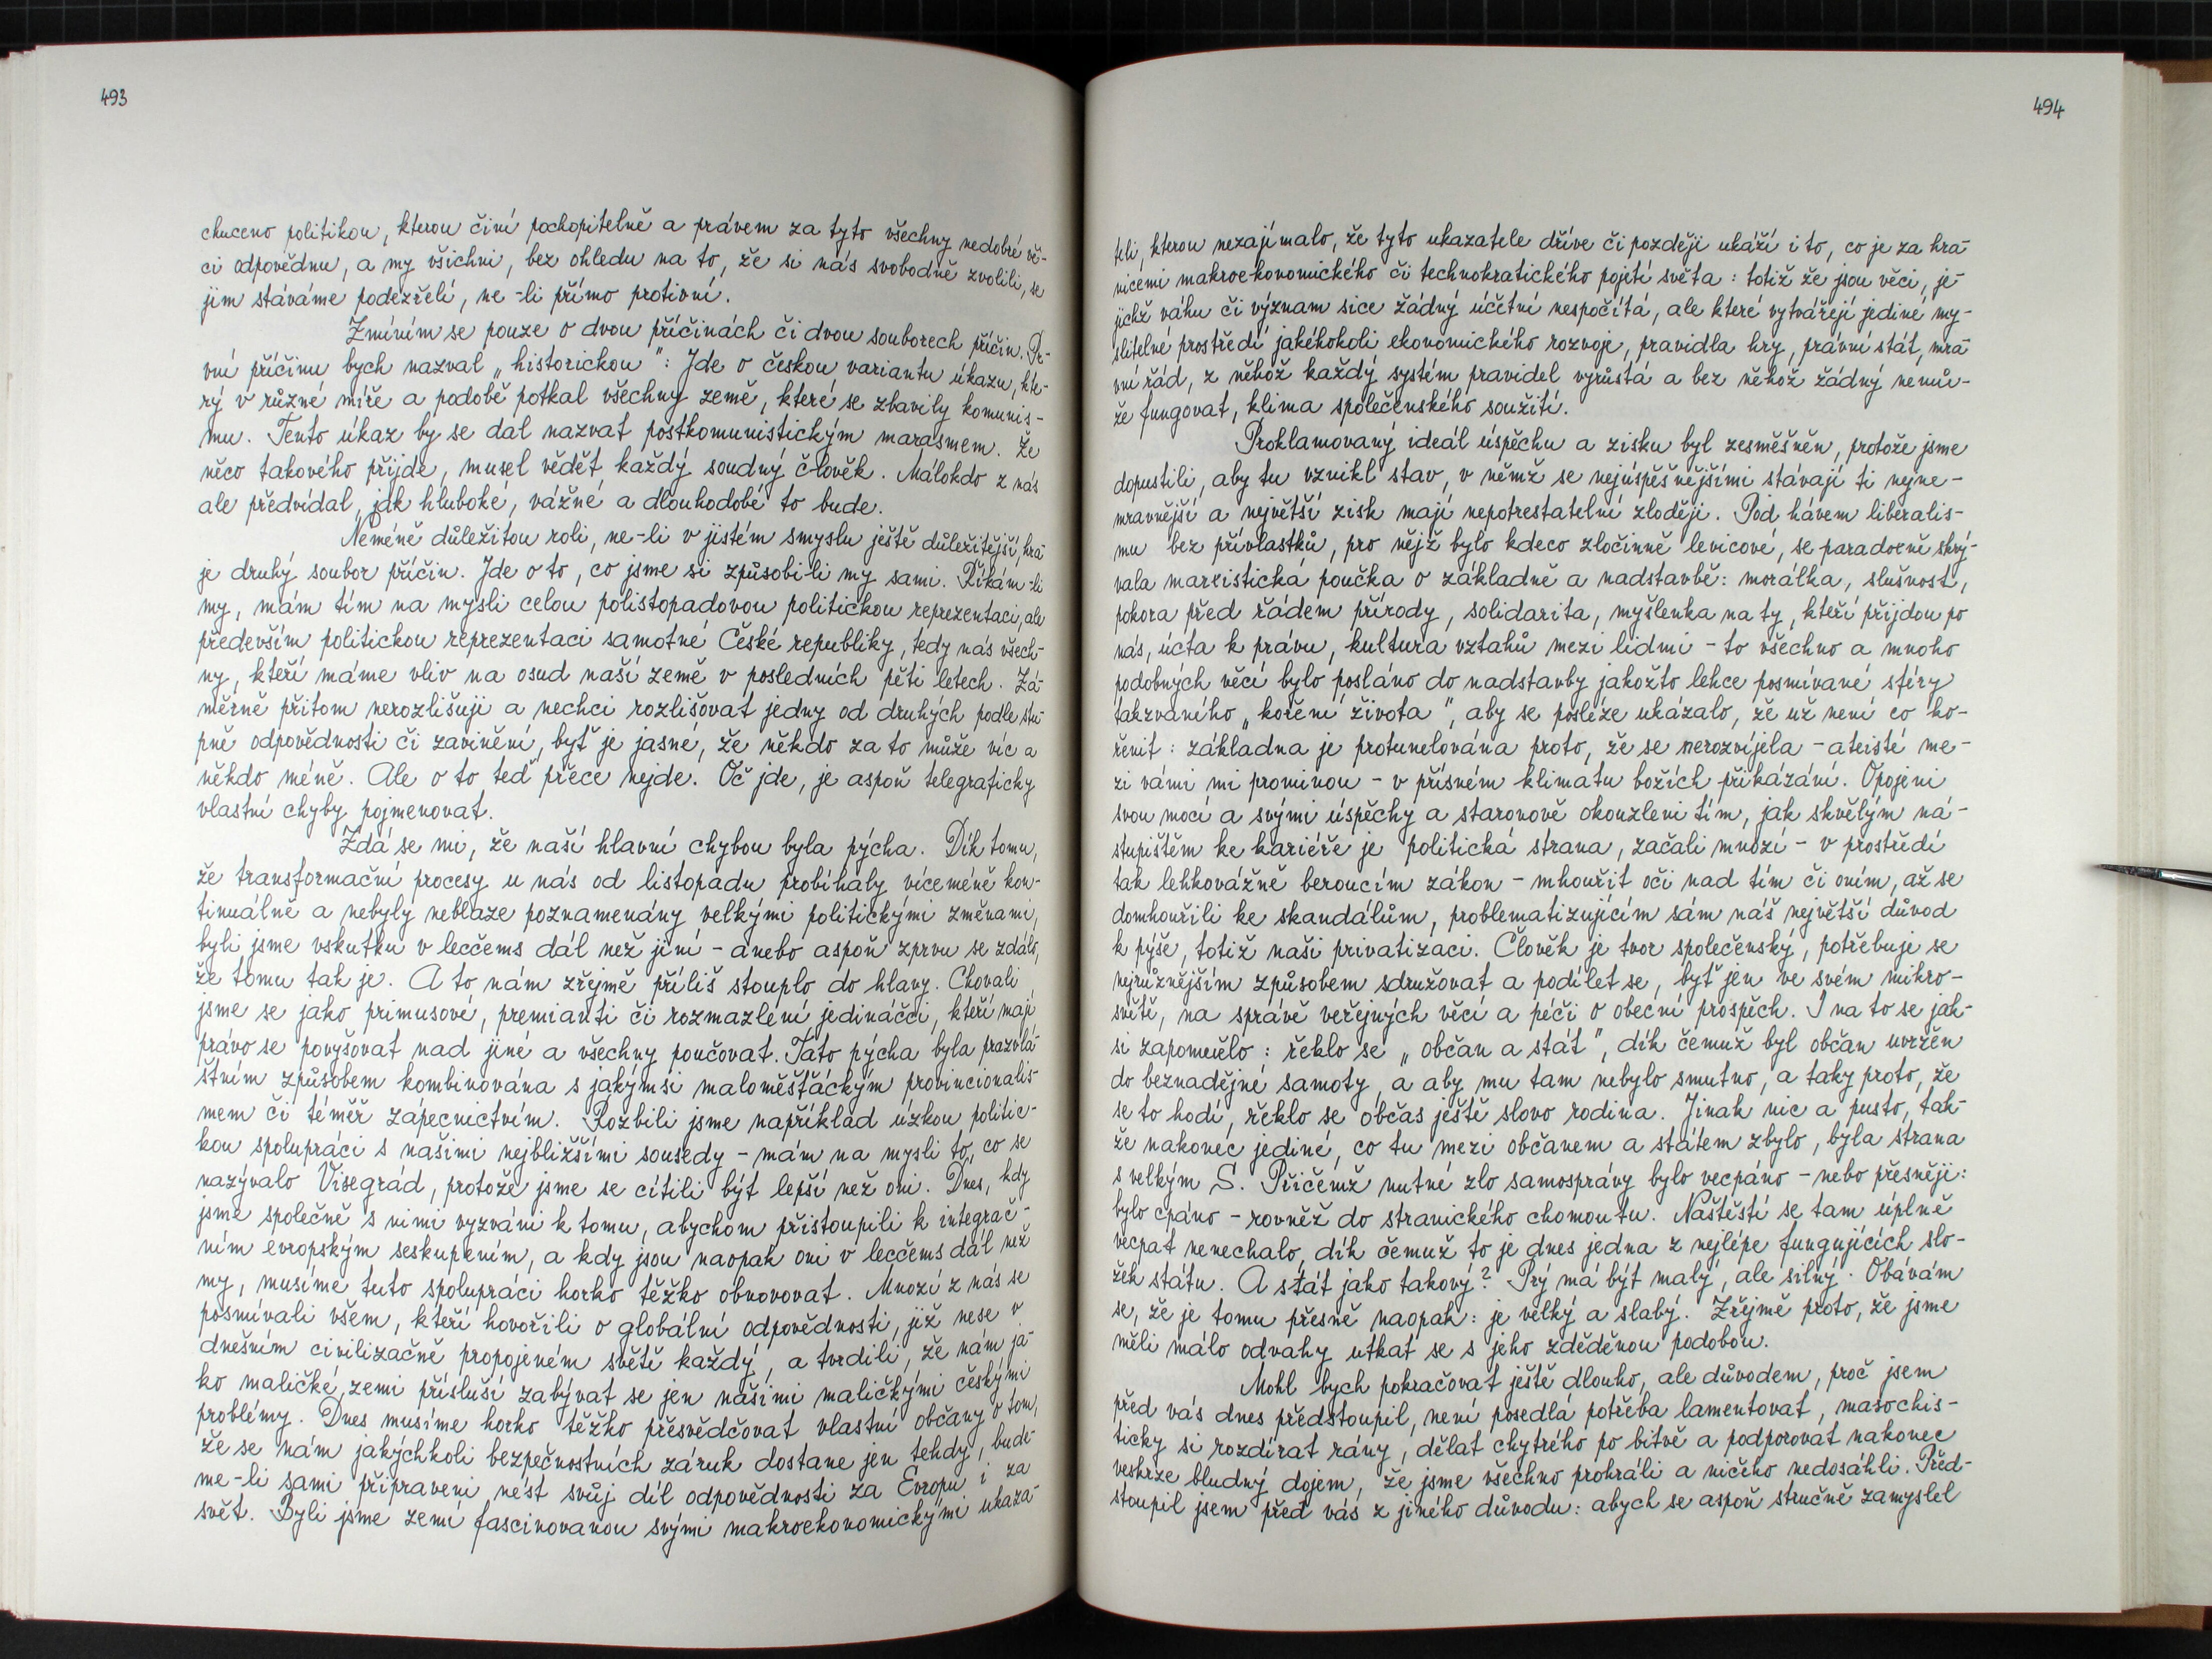 493
chuceno politikou, kterou činí pochopitelně a právem za tyto všechny nedobré vě-
ci odpovědnu, a my všichni, bez ohledu na to, že si nás svobodně zvolili, se
jim stáváme podezřelí, ne-li přímo protivní.
Zmíním se pouze o dvou příčinách či dvou souborech příčin. Pr-
vní příčinu bych nazval „historickou": Jde o českou variantu úkazu, kte-
rý v různé míře a podobě potkal všechny země, které se zbavily komunis-
mu. Tento úkaz by se dal nazvat postkomunistickým marasmem. Že
něco takového přijde, musel vědět každý soudný člověk. Málokdo z nás
ale předvídal, jak hluboké, vážné a dlouhodobé to bude.
Neméně důležitou roli, ne-li v jistém smyslu ještě důležitější, hra-
je druhý soubor příčin. Jde o to, co jsme si způsobili my sami. Říkám-li
my, mám tím na mysli celou polistopadovou politickou reprezentaci, ale
především politickou reprezentaci samotné České republiky, tedy nás všech-
ny, kteří máme vliv na osud naší země v posledních pěti letech. Zá-
měrně přitom nerozlišuji a nechci rozlišovat jedny od druhých podle stu-
pně odpovědnosti či zavinění, byť je jasné, že někdo za to může víc a
někdo méně. Ale o to teď přece nejde. Oč jde, je aspoň telegraficky
vlastní chyby pojmenovat.
Zdá se mi, že naší hlavní chybou byla pýcha. Dík tomu,
že transformační procesy u nás od listopadu probíhaly víceméně kon-
tinuálně a nebyly neblaze poznamenány velkými politickými změnami,
byli jsme vskutku v lecčems dál než jiní - anebo aspoň zprvu se zdálo,
že tomu tak je. A to nám zřejmě příliš stouplo do hlavy. Chovali
jsme se jako primusové, premianti či rozmazlení jedináčci, kteří mají
právo se povyšovat nad jiné a všechny poučovat. Tato pýcha byla prazvlá-
štním způsobem kombinována s jakýmsi maloměšťáckým provincionalis-
mem či téměř zápecnictvím. Rozbili jsme například úzkou politic-
kou spolupráci s našimi nejbližšími sousedy - mám na mysli to, co se
nazývalo Visegrád, protože jsme se cítili být lepší než oni. Dnes, kdy
jsme společně s nimi vyzváni k tomu, abychom přistoupili k integrač-
ním evropským seskupením, a kdy jsou naopak oni v lecčems dál než
my, musíme tuto spolupráci horko těžko obnovovat. Mnozí z nás se
posmívali všem, kteří hovořili o globální odpovědnosti, již nese v
dnešním civilizačně propojeném světě každý, a tvrdili, že nám ja-
ko maličké zemi přísluší zabývat se jen našimi maličkými českými
problémy. Dnes musíme horko těžko přesvědčovat vlastní občany o tom,
že se nám jakýchkoli bezpečnostních záruk dostane jen tehdy, bude-
me-li sami připraveni nést svůj díl odpovědnosti za Evropu i za
svět. Byli jsme zemí fascinovanou svými makroekonomickými ukaza-
494
teli, kterou nezajímalo, že tyto ukazatele dříve či později ukáží i to, co je za hra-
nicemi makroekonomického či technokratického pojetí světa: totiž že jsou věci, je-
jichž váhu či význam sice žádný účetní nespočítá, ale které vytvářejí jediné my-
slitelné prostředí jakéhokoli ekonomického rozvoje, pravidla hry, právní stát, mra-
vní řád, z něhož každý systém pravidel vyrůstá a bez něhož žádný nemů-
že fungovat, klima společenského soužití.
Proklamovaný ideál úspěchu a zisku byl zesměšněn, protože jsme
dopustili, aby tu vznikl stav, v němž se nejúspěšnějšími stávají ti nejne-
mravnější a největší zisk mají nepotrestatelní zloději. Pod hávem liberalis-
mu bez přívlastků, pro nějž bylo kdeco zločinně levicové, se paradoxně skrý-
vala marxistická poučka o základně a nadstavbě: morálka, slušnost,
pokora před řádem přírody, solidarita, myšlenka na ty, kteří přijdou po
nás, úcta k právu, kultura vztahů mezi lidmi - to všechno a mnoho
podobných věcí bylo posláno do nadstavby jakožto lehce posmívané sféry
takzvaného „koření života", aby se posléze ukázalo, že už není co ko-
řenit: základna je protunelována proto, že se nerozvíjela - ateisté me-
zi vámi mi prominou - v přísném klimatu božích přikázání. Opojeni
svou mocí a svými úspěchy a staronově okouzleni tím, jak skvělým ná-
stupištěm ke kariéře je politická strana, začali mnozí - v prostředí
tak lehkovážně beroucím zákon - mhouřit oči nad tím či oním, až se
domhouřili ke skandálům, problematizujícím sám náš největší důvod
k pýše, totiž naši privatizaci. Člověk je tvor společenský, potřebuje se
nejrůznějším způsobem sdružovat a podílet se, byť jen ve svém mikro-
světě, na správě veřejných věcí a péči o obecní prospěch. I na to se jak-
si zapomnělo: řeklo se „občan a stát", dík čemuž byl občan uvržen
do beznadějné samoty, a aby mu tam nebylo smutno, a taky proto, že
se to hodí, řeklo se občas ještě slovo rodina. Jinak nic a pusto, tak-
že nakonec jediné, co tu mezi občanem a státem zbylo, byla strana
s velkým S. Přičemž nutné zlo samosprávy bylo vecpáno - nebo přesněji:
bylo cpáno - rovněž do stranického chomoutu. Naštěstí se tam úplně
vecpat nenechalo, dík čemuž to je dnes jedna z nejlépe fungujících slo-
žek státu. A stát jako takový? Prý má být malý, ale silný. Obávám
se, že je tomu přesně naopak: je velký a slabý. Zřejmě proto, že jsme
měli málo odvahy utkat se s jeho zděděnou podobou.
Mohl bych pokračovat ještě dlouho, ale důvodem, proč jsem
před vás dnes předstoupil, není posedlá potřeba lamentovat, masochis-
ticky si rozdírat rány, dělat chytrého po bitvě a podporovat nakonec
veskrze bludný dojem, že jsme všechno prohráli a ničeho nedosáhli. Před-
stoupil jsem před vás z jiného důvodu: abych se aspoň stručně zamyslel